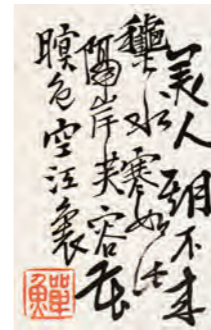 美人期不来
穐水寒如此
隔岸芙容花
暝色空江裏
鱓